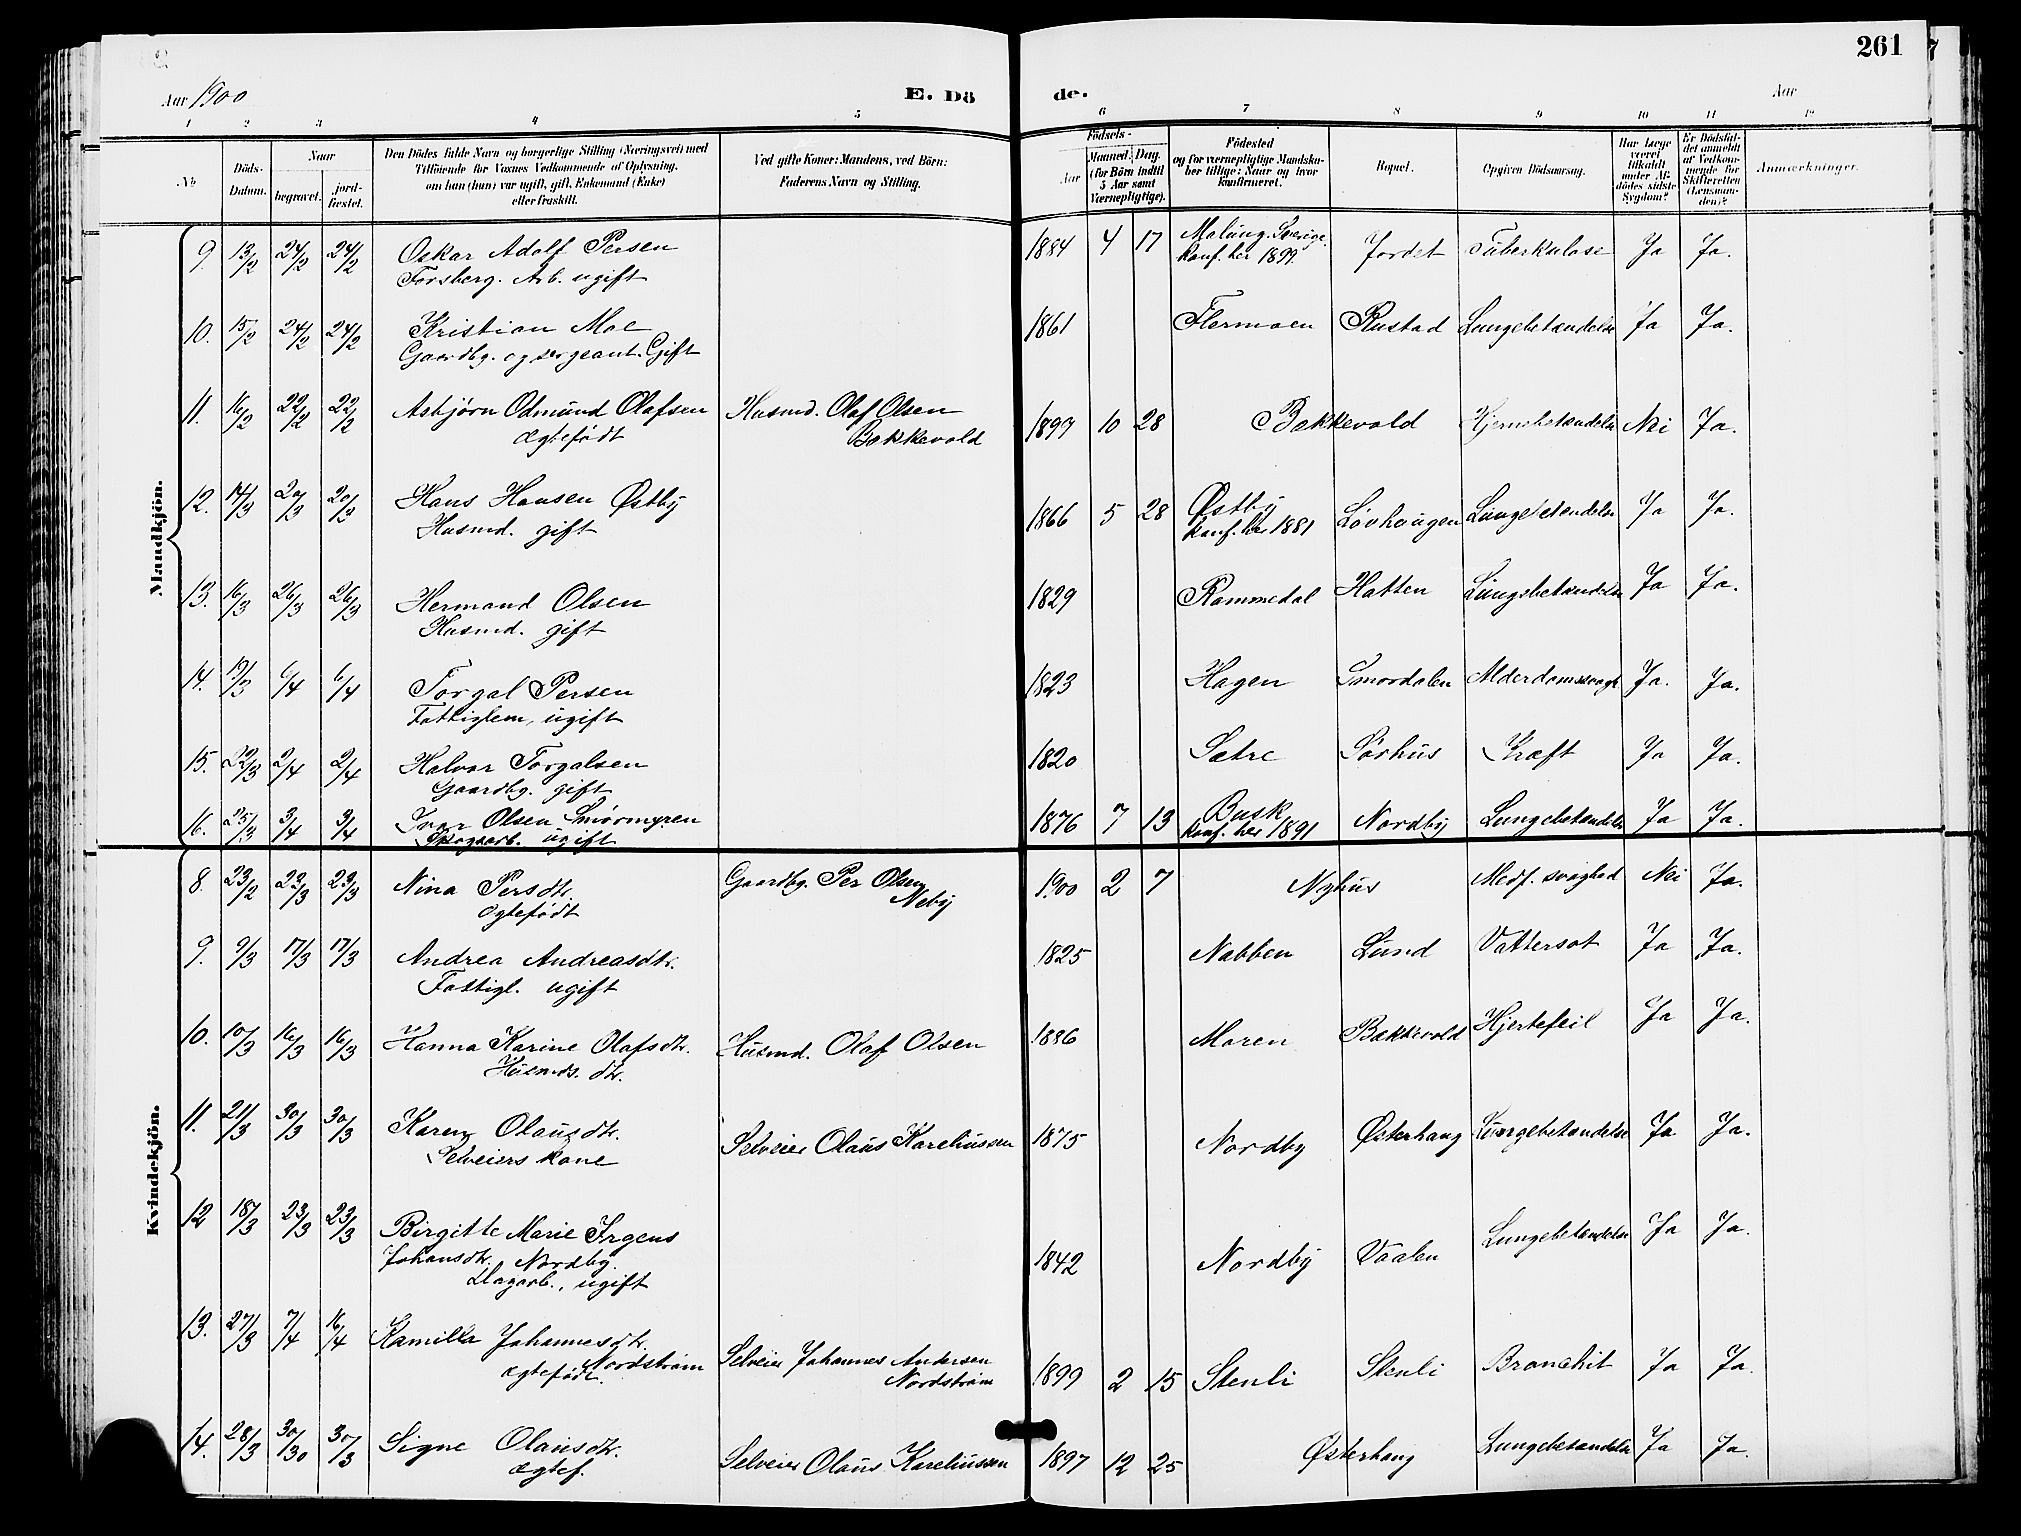 261
Aar 1900
E. Dö
de.
Aar
1 2 3 4 5 6 7 8 9 10 11 12
No
Döds-Datum.
Naar
begravet.
jord-fæstet.
Den Dödes fulde Navn og borgerlige Stilling (Næringsvei) med
Tilföiende for Voxnes Vedkommende af Oplysning,
om han (hun) var ugift, gift, Enkemand (Enke)
eller fraskilt.
Ved gifte Koner: Mandens, ved Börn:
Faderens Navn og Stilling.
Födsels-
Aar
Maaned. Dag.
(for Börn indtil
5 Aar samt
Værnepligtige).
Födested
og for værnepligtige Mandska-
ber tillige: Naar og hvor
konfirmeret.
Bopæl.
Opgiven Dödsaarsag.
Har Læge
været
tilkaldt
under Af-
dödes sidste
Sygdom?
Er Dödsfal-
det anmeldt
af Vedkom-
mende for
Skifteretten
(Lensman-
den)?
Anmærkninger.
Mandkjön.
9. 13/2 24/2 24/2 Oskar Adolf Persen 1884 4 17 Malung. Sverige. Jordet Tuberkulose Ja Ja.
Forsberg. Arb. ugift konf. her 1899.
10. 15/2 24/2 24/2 Kristian Moe 1861 Flermoen Rustad Lungebetændelse Ja Ja.
Gaardbg. og sergeant. Gift
11. 16/2 22/2 22/2 Asbjørn Odmund Olafsen Husmd. Olaf Olsen 1897 10 28 Bakkevold Hjernebetændelse Nei Ja.
ægtefødt Bakkevold
12. 14/3 20/3 20/3 Hans Hansen Østby 1866 5 28 Østby Løvhaugen Lungebetændelse Ja Ja.
Husmd. gift konf. her 1881
13. 16/3 26/3 26/3 Hermand Olsen 1829 Rammedal Hatten Lungebetændelse Ja Ja.
Husmd. gift
14. 19/3 6/4 6/4 Torgal Persen 1823 Hagen Smordalen Alderdomssvagh Ja. Ja.
Fattiglem, ugift
15. 22/3 2/4 2/4 Halvor Torgalsen 1820 Sætre Sørhus Kræft Ja Ja.
Gaardbg. gift
16. 25/3 3/4 3/4 Ivar Olsen Smørmyren 1876 7 13 Busk Nordby Lungebetændelse Ja Ja.
Skogsarb. ugift konf. her 1891
Kvindekjön.
8. 23/2 23/3 23/3 Nina Persdtr. Gaardbg. Per Olsen 1900 2 7 Nyhus Medf. svaghed Nei Ja.
ægtefødt Neby
9. 9/3 17/3 17/3 Andrea Andreasdtr. 1825 Nabben Lund Vattersot Ja Ja.
Fattigl. ugift
10. 10/3 16/3 16/3 Hanna Karine Olafsdtr. Husmd. Olaf Olsen 1886 Moren Bakkevold Hjertefeil Ja Ja.
Husmds. dtr.
11. 21/3 30/3 30/3 Karen Olausdtr. Selveier Olaus Kareliussen 1875 Nordby Østerhaug Lungebetændelse Ja Ja.
Selveiers kone
12 18/3 23/3 23/3 Birgitte Marie Irgens 1842 Nordby Vaalen Lungebetændelse Ja Ja.
Johansdtr. Nordby.
Dagarb., ugift
13. 27/3 7/4 16/4 Kamilla Johannesdtr. Selveier Johannes Andersen 1899 2 15 Stenli Stenli Bronchit Ja Ja.
Nordstrøm Nordstrøm
ægtefødt.
14. 28/3 30/30 30/3 Signe Olausdtr. Selveier Olaus Kareliussen 1897 12 25 Østerhaug Lungebetændelse Ja Ja.
ægtef.